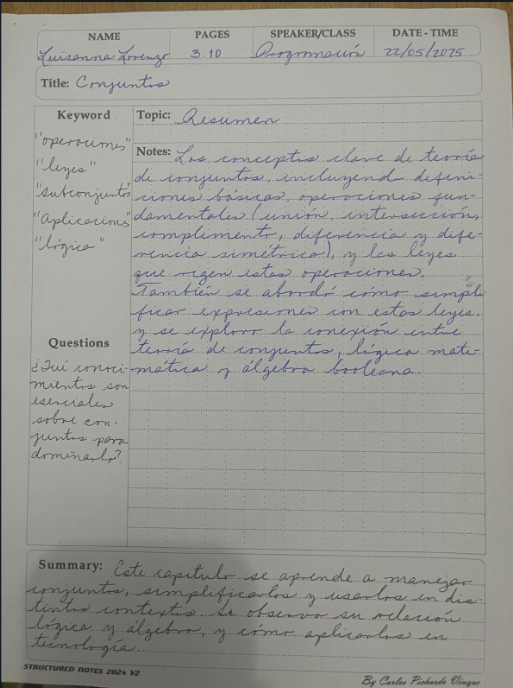 NAME PAGES SPEAKER/CLASS DATE - TIME
Luisanna Lorenzo 3.10 Programación 22/05/2025
Title: Conjuntos
Keyword
"operaciones"
"leyes"
"subconjunto"
"Aplicacions"
"lógica"
Topic: Resumen
Notes: Los conceptos clave de teoría
de conjuntos, incluyendo defini-
ciones básicas, operaciones fun-
damentales (unión, intersección,
complimento, diferencia y dife-
rencia simétrica), y las leyes
que rigen estas operaciones.
También se abordó cómo simpli
ficar expresiones con estas leyes.
y se exploro la conexión entre
teoría de conjuntos, lógica mate-
mática y álgebra booleana.
Questions
¿Qué conoci-
mientos son
esenciales
sobre con-
juntos para
dominarlo?
Summary: Este capitulo se aprende a manejar
conjuntos, simplificarlos y usarlos en dis-
tintos contextos. Se observa su relación
lógica y álgebra, y cómo aplicarlos en
tecnología.
STRUCTURED NOTES 2024 V2
By Carlos Pichardo Vinque